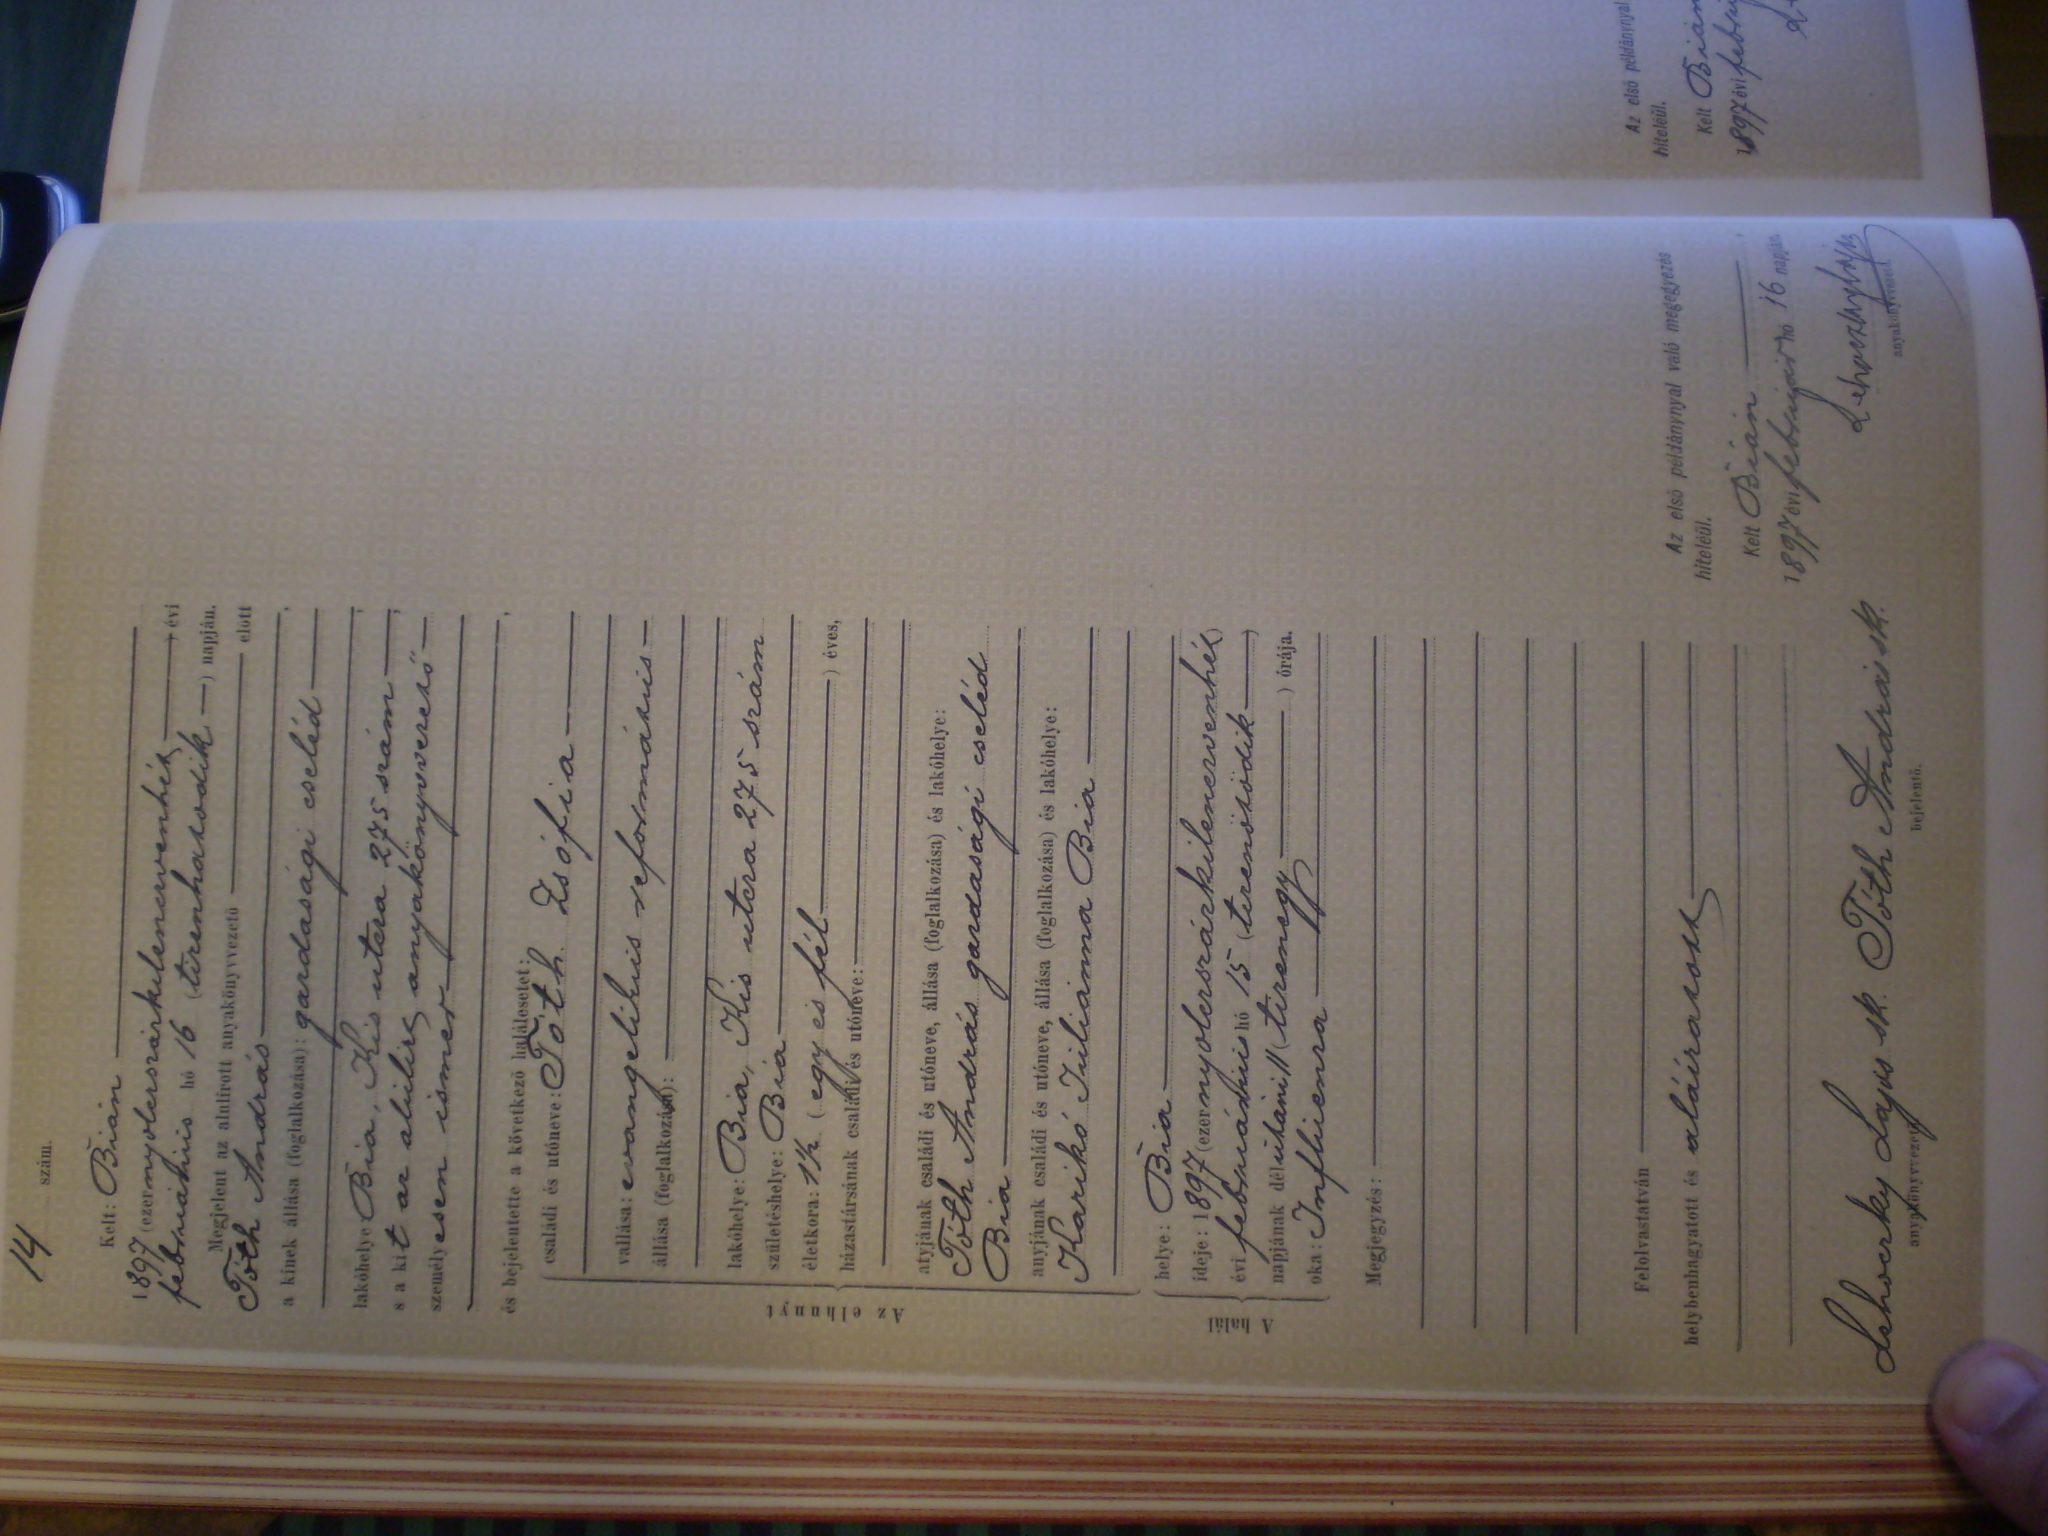 14 szám.
Kelt: Bián
1897 (ezernyolcszázkilencvenhét) évi
februárius hó 16 (tizenhatodik) napján.
Megjelent az alulirott anyakönyvvezető előtt
Tóth András
a kinek állása (foglalkozása): gazdasági cseléd,
lakóhelye Bia, Kis utcza 275 szám,
s a kit az alulirt anyakönyvvezető
személyesen ismer
és bejelentette a következő halálesetet:
Az elhunyt
családi és utóneve: Tóth Zsófia
vallása: evangelikus református
állása (foglalkozása):
lakóhelye: Bia, Kis utcza 275 szám
születéshelye: Bia
életkora: 1½ (egy és fél) éves,
házastársának családi és utóneve:
atyjának családi és utóneve, állása (foglalkozása) és lakóhelye:
Tóth András gazdasági cseléd
Bia
anyjának családi és utóneve, állása (foglalkozása) és lakóhelye:
Karikó Juliánna Bia
A halál
helye: Bia
ideje: 1897 (ezernyolcszázkilencvenhét)
évi februárius hó 15 (tizenötödik)
napjának délutáni 11 (tizenegy) órája.
oka: Influenza
Megjegyzés:
Felolvastatván
helybenhagyatott és aláiratott
Lehoczky Lajos sk. Tóth András sk.
anyakönyvvezető. bejelentő.
Az első példánynyal való megegyezés
hiteléül.
Kelt Bián,
1897 évi február hó 16 napján.
Lehoczky Lajos
anyakönyvvezető.
Az első példánynyal
hiteléül.
Kelt Bián
1897 évi